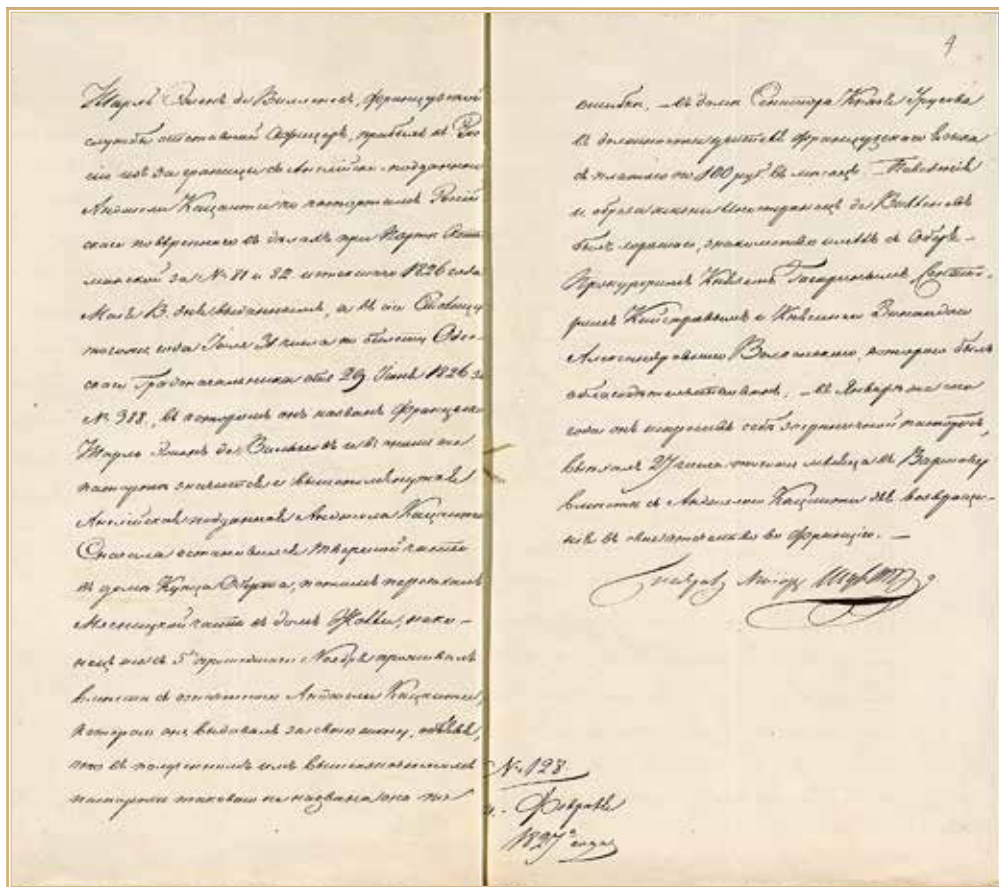 Шарль Эженъ де Вильневъ, французской
службы отставной Офицеръ, прибылъ въ Рос
сію изъ заграницы съ Англійско-подданною
Анджели Кацаити по паспортамъ Россій
скаго повѣреннаго въ дѣлахъ при Портѣ Отто
манской за № 81 и 82 и текшаго 1826 года
Мая В. дня выданнымъ, а въ сію Столицу
того же года Іюля 31 числа по билету Одес
скаго Градоначальника отъ 29 Іюня 1826 за
№ 388, въ которомъ онъ названъ французъ
Шарль Эженъ де Вильневъ и въ
паспортѣ значится и вышеупомянутая
Англійская подданная Анджела Кацаити
Сначала остановился Тверской части
въ домѣ Купца Оберта, потомъ переѣхалъ
Мясницкой части въ домъ нако-
нецъ съ 5го прошедшаго Ноября проживалъ
вмѣстѣ съ означенною Анджели Кацаити,
которую онъ выдавалъ за свою жену,
что въ полученномъ имъ вышеозначенномъ
паспортѣ таковою не названа она по
4
ошибки, – въ домѣ Сенатора Князя Урусова
въ должности учителя французскаго языка
съ платою по 100 руб въ мѣсяцъ. Поведенія
и образа жизни иностранецъ де Вильневъ
былъ хорошаго, знакомство имѣлъ съ Оберъ-
Прокуроромъ Княземъ Гагаринымъ, Сенато-
ромъ и Княгинею Зинаидою
Александровною Волконскою, которою былъ
– въ Январѣ сего
года онъ испросилъ себѣ заграничной паспортъ,
выѣхалъ 27 числа того мѣсяца въ Варшаву
вмѣстѣ съ Анджелою Кацаити для возвраще-
нія въ свое отечество во Францію. –
Маіоръ
№ 128
Февраля
1827го года